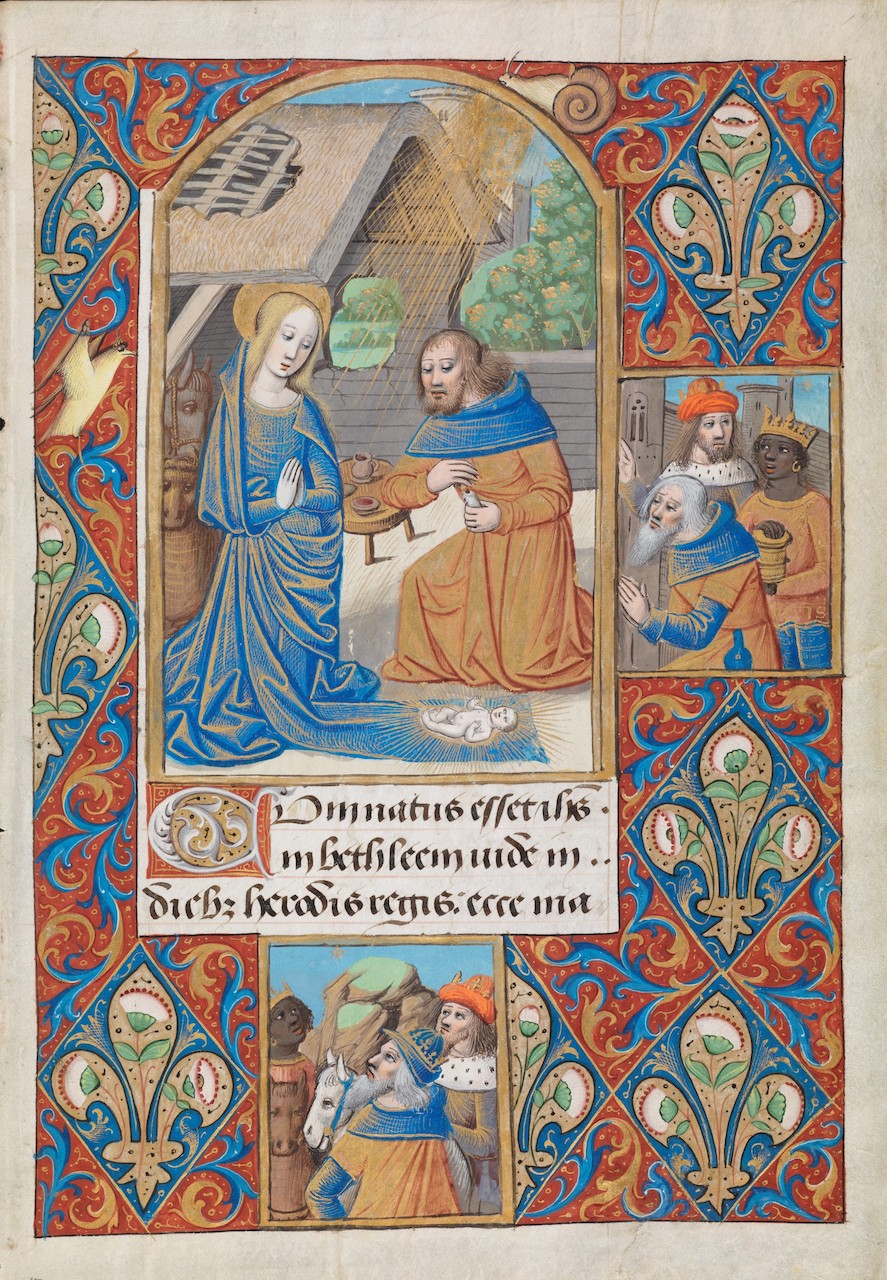 CUm natus esset ihs̄ ·
in bethleem iude in ..
diebꝫ herodis regis: ecce ma